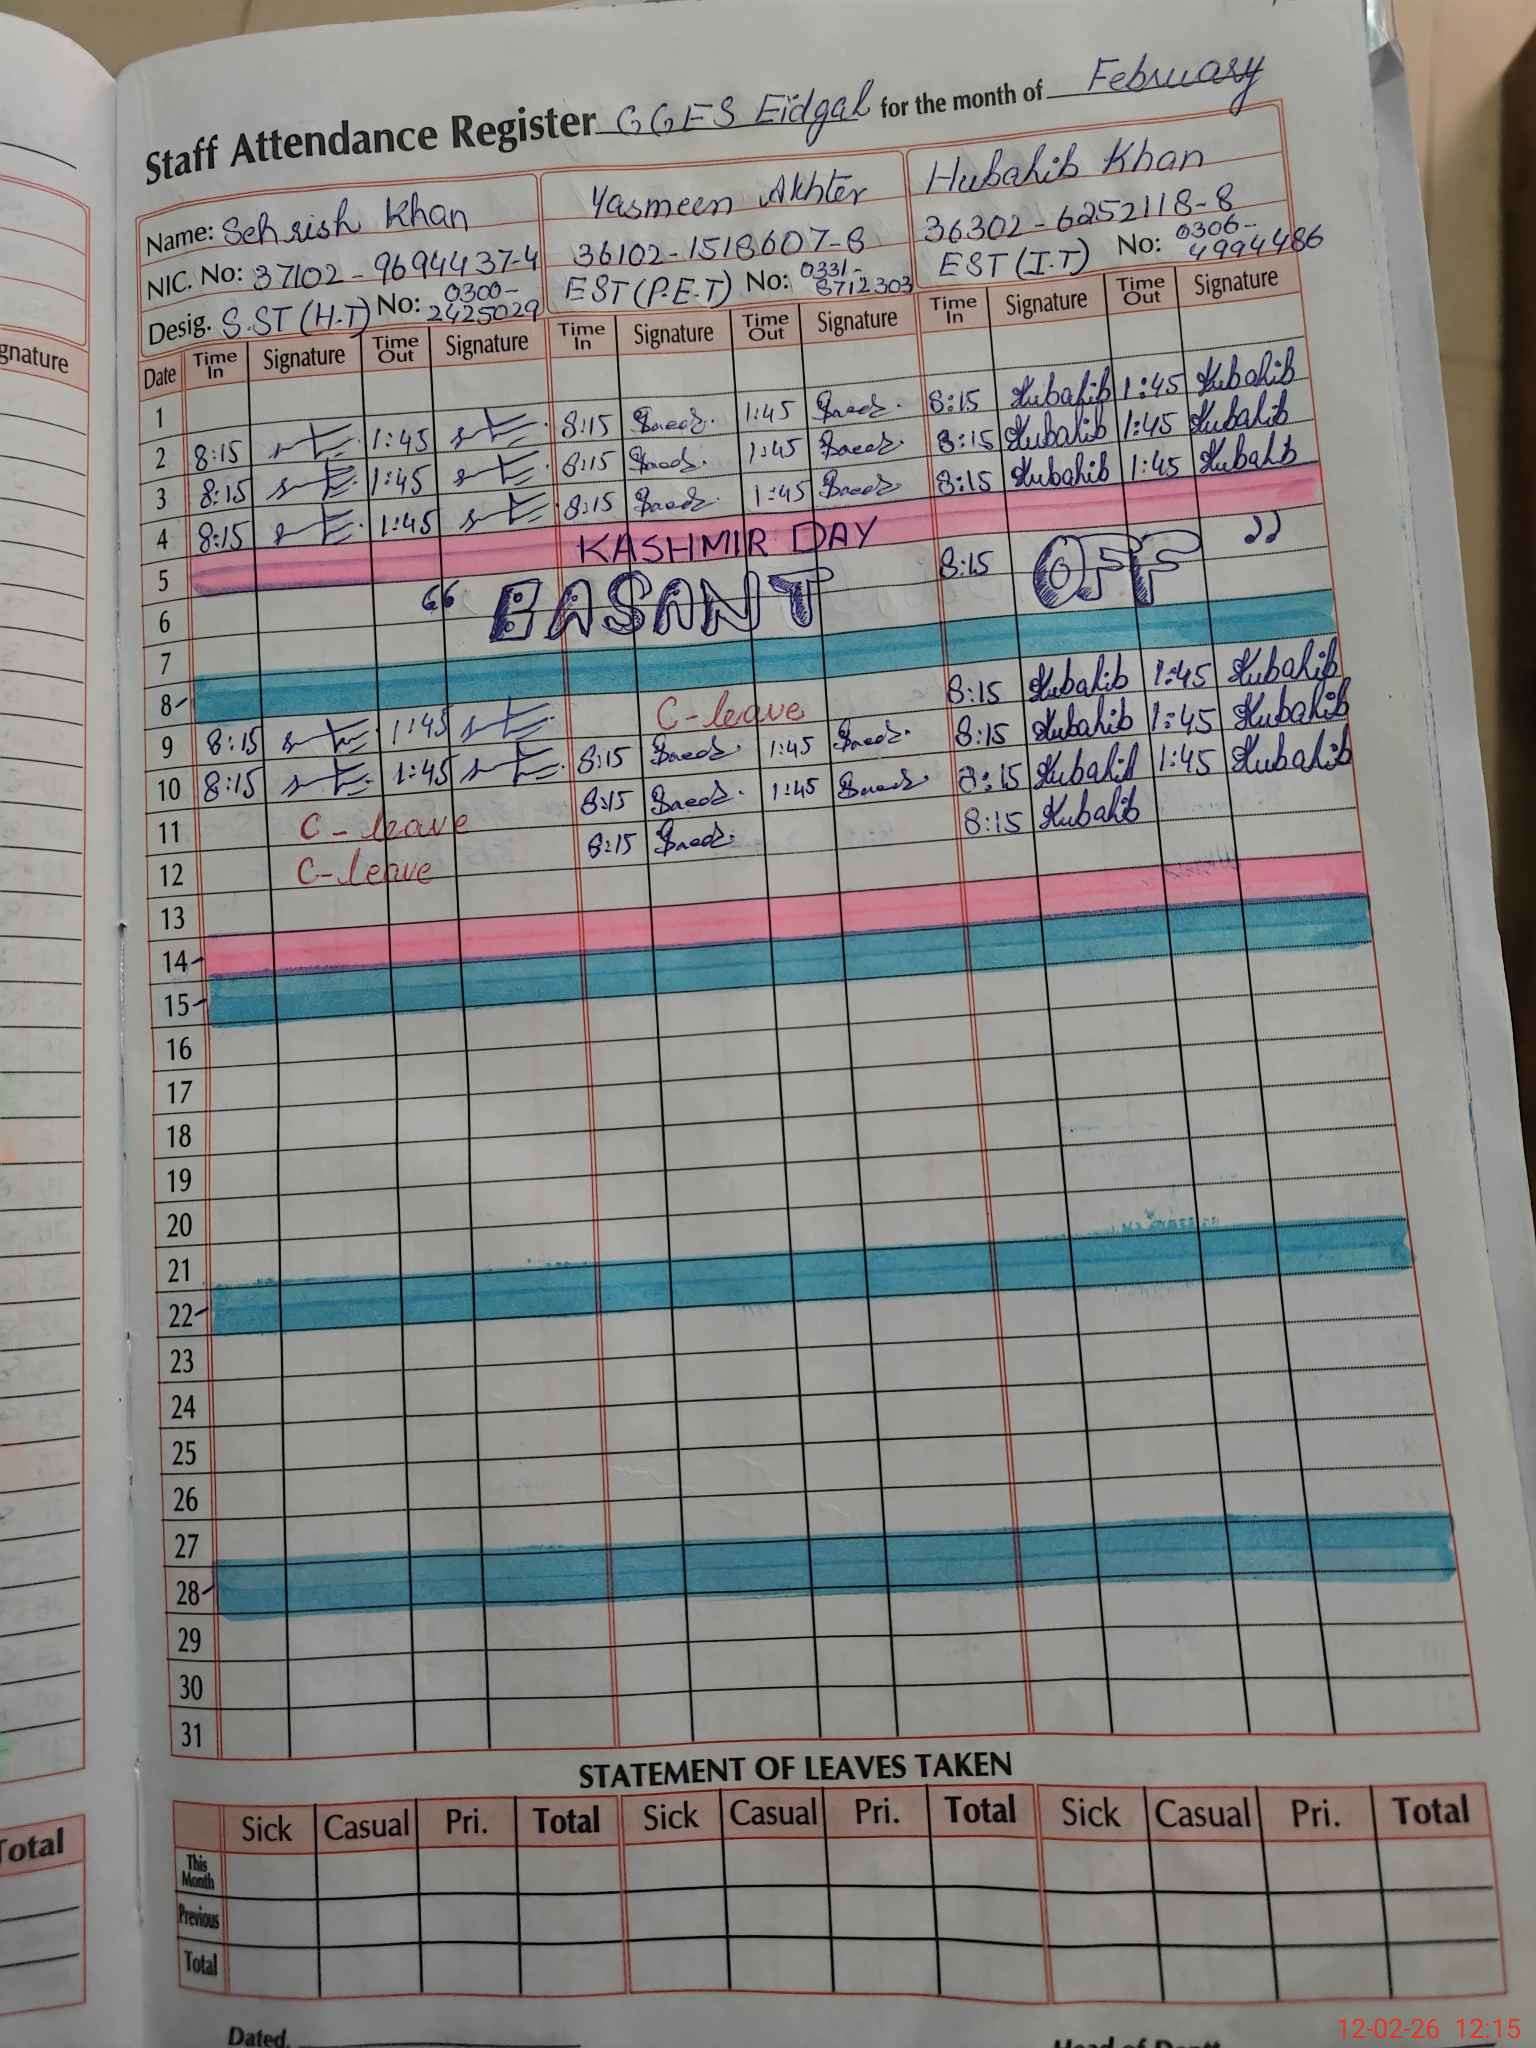 Staff Attendance Register GGES Eidgah for the month of February
Name: Sehrish Khan Yasmeen Akhter Hubahib Khan
NIC. No: 37102-9694437-4 36102-1518607-8 36302-6252118-8
Desig. S.ST (H.T) No: 0300-2425029 EST (P.E.T) No: 0331-8712303 EST (I.T) No: 0306-4994486
Date Time In Signature Time Out Signature Time In Signature Time Out Signature Time In Signature Time Out Signature
1
2 8:15 1:45 8:15 1:45 8:15 Hubahib 1:45 Hubahib
3 8:15 1:45 8:15 1:45 8:15 Hubahib 1:45 Hubahib
4 8:15 1:45 8:15 1:45 8:15 Hubahib 1:45 Hubahib
5 KASHMIR DAY
6 "BASANT 8:15 OFF"
7
8
9 8:15 1:45 C-leave 8:15 Hubahib 1:45 Hubahib
10 8:15 1:45 8:15 1:45 8:15 Hubahib 1:45 Hubahib
11 C-leave 8:15 1:45 8:15 Hubahib 1:45 Hubahib
12 C-leave 8:15 8:15 Hubahib
13
14
15
16
17
18
19
20
21
22
23
24
25
26
27
28
29
30
31
STATEMENT OF LEAVES TAKEN
Sick Casual Pri. Total Sick Casual Pri. Total Sick Casual Pri. Total
This Month
Previous
Total
Dated.
gnature
Total
12-02-26 12:15